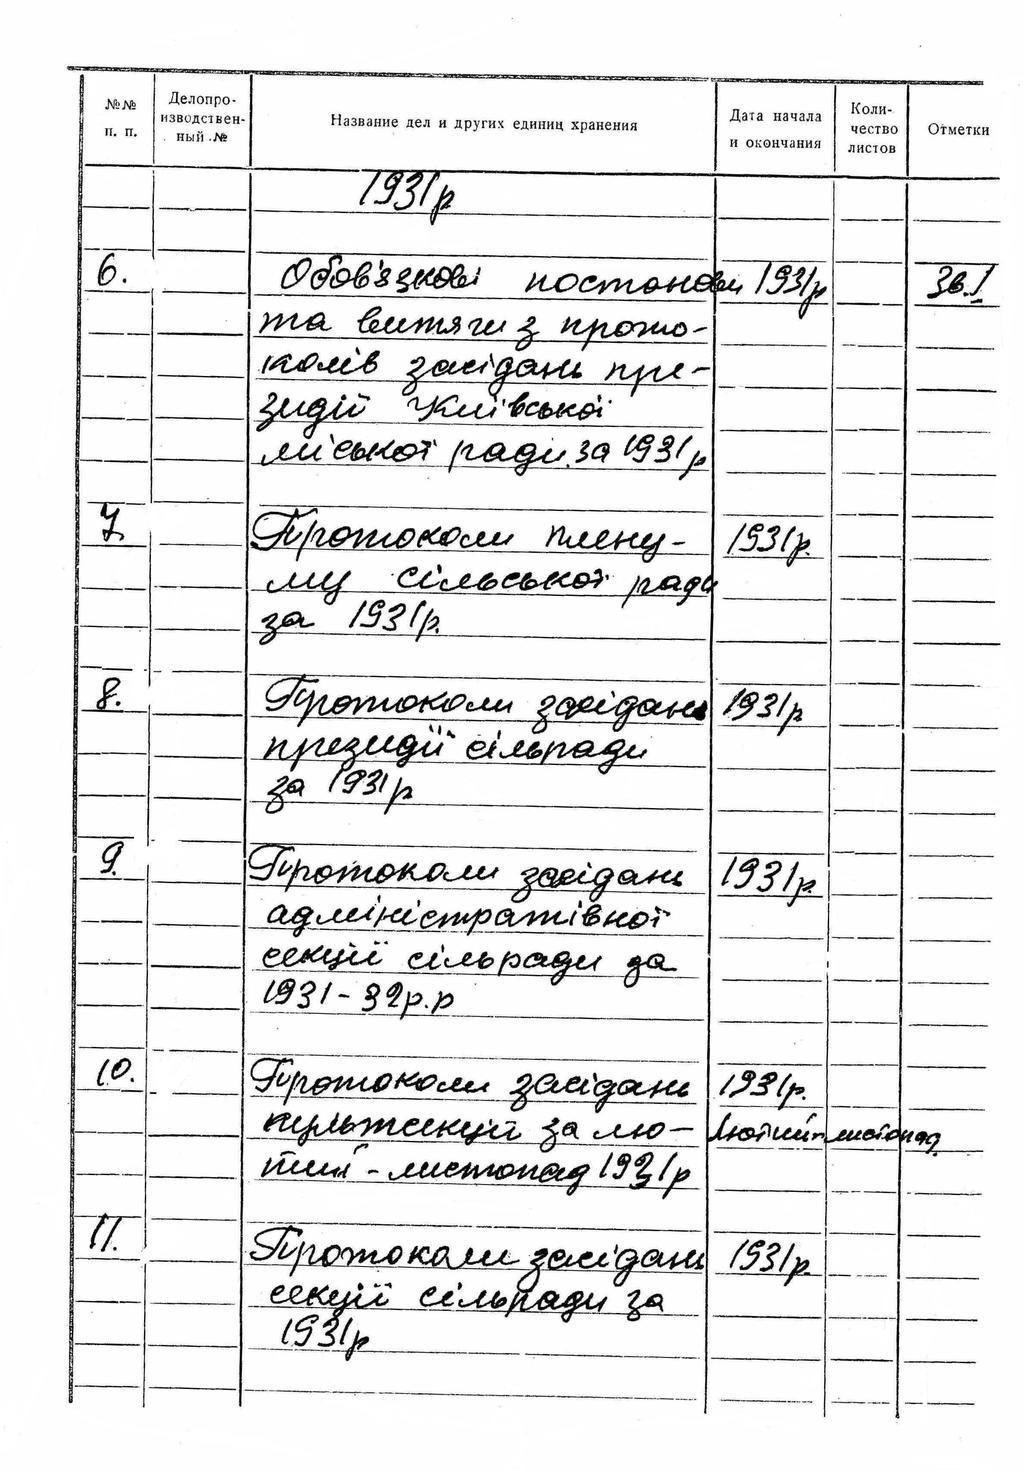 №№ п. п.
Делопроизводственный №
Название дел и других единиц хранения
Дата начала и окончания
Количество листов
Отметки
1931р
6. Обов'язкові постанови 1931р
та витяги з прото-
колів засідань пре-
зидії Київської
міської ради за 1931р
7. Протоколи плену- 1931р.
му сільської ради
за 1931р.
8. Протоколи засідань 1931р
президії сільради
за 1931р
9. Протоколи засідань 1931р.
адміністратівної
секції сільради за
1931-32р.р
10. Протоколи засідань 1931р.
культсекції за лю- Лютий-листопад
тий-листопад 1931р
11. Протоколи засідань 1931р.
секції сільради за
1931р